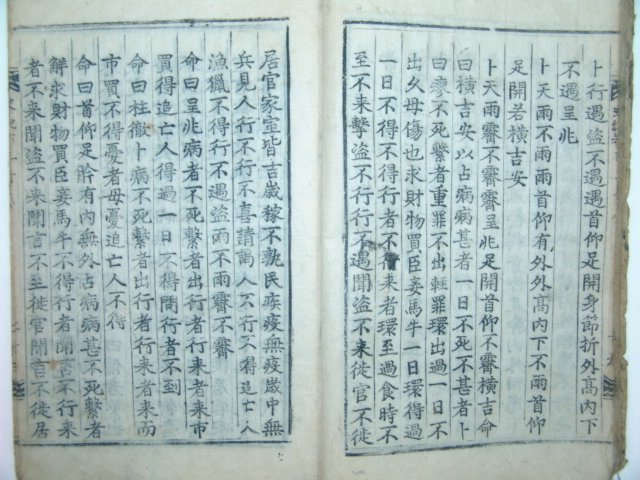 卜行遇盜不遇遇首仰足開身節折外高內下
不遇呈兆
卜天雨不雨雨首仰有外外高內下不雨首仰
足開若橫吉安
卜天雨霽不霽霽呈兆足開首仰不霽橫吉命
曰橫吉安以占病病甚者一日不死不甚者卜
曰瘳不死繫者重罪不出輕罪環出過一日不
出久毋傷也求財物買臣妾馬牛一日環得過
一日不得不得行者不行來者環至過食時不
至不來擊盜不行行不遇聞盜不來徙官不徙
居官家室皆吉歲稼不孰民疾疫無疫歲中無
兵見人行不行不喜請謁人不行不得追亡人
漁獵不得行不遇盜雨不雨霽不霽
命曰呈兆病者不死繫者出行者行來者來市
買得追亡人得過一日不得問行者不到
命曰柱徹卜病不死繫者出行者行來者來而
市買不得憂者毋憂追亡人不得
命曰首仰足肣有內無外占病病甚不死繫者
解求財物買臣妾馬牛不得行者聞言不行來
者不來聞盜不來聞言不至徙官聞言不徙居